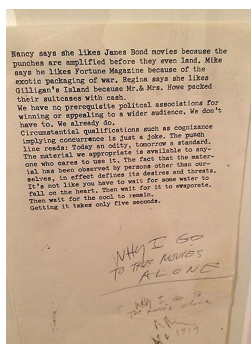 Nancy says she likes James Bond movies because the
punches are amplified before they even land. Mike
says he likes Fortune Magazine because of the
exotic packaging of war. Regina says she likes
Gilligan's Island because Mr.& Mrs. Howe packed
their suitcases with cash.
We have no prerequisite polical associations for
winning or appealing to a wider audience. We don't
have to. We already do.
Circumstantial qualifications such as cognizance
implying concurrence is just a joke. The punch
line reads: Today an odity, tomorrow a standard.
The material we appropriate is available to any-
one who cares to use it. The fact that the mater-
ial has been observed by persons other than our-
selves, in effect defines its desires and threats.
It's not like you have to wait for some water to
fall on the heart. Then wait for it to evaporate.
Then wait for the cool to remain.
Getting it takes only five seconds.
WHY I GO
TO THE MOVIES
ALONE
WHY I GO TO